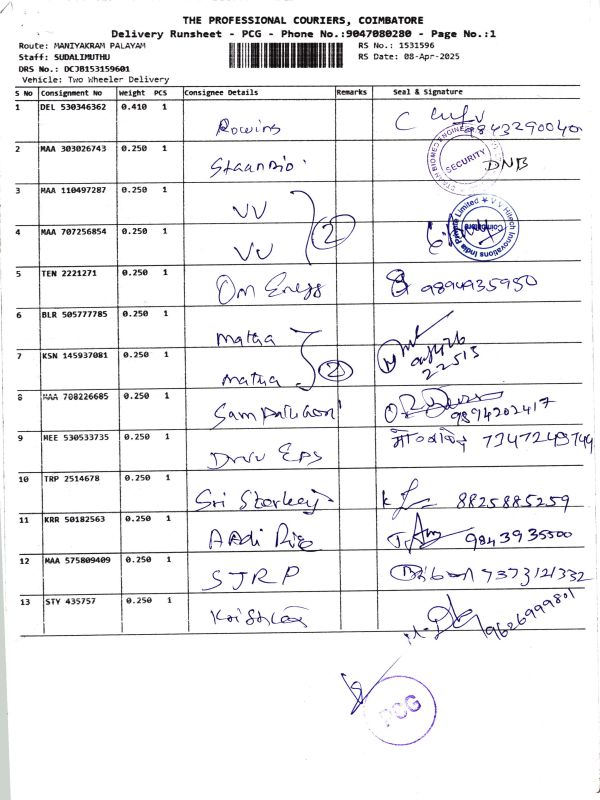 THE PROFESSIONAL COURIERS, COIMBATORE
Delivery Runsheet - PCG - Phone No.:9047080280 - Page No.:1
Route: MANIYAKRAM PALAYAM RS No.: 1531596
Staff: SUDALIMUTHU RS Date: 08-Apr-2025
DRS No.: DCJB153159601
Vehicle: Two Wheeler Delivery
S No Consignment No Weight PCS Consignee Details Remarks Seal & Signature
1 DEL 530346362 0.410 1
Rowins 9843290040
2 MAA 303026743 0.250 1
SECURITY DNB
3 MAA 110497287 0.250 1
VV 2
V V Hitech Innovations India Private Limited Coimbatore
4 MAA 707256854 0.250 1
VV
5 TEN 2221271 0.250 1
Om Energy 9894935950
6 BLR 505777785 0.250 1
matha
7 KSN 145937081 0.250 1
matha 2 22515
8 MAA 708226685 0.250 1
9894202417
9 MEE 530533735 0.250 1
EPS
10 TRP 2514678 0.250 1
Sri 8825885259
11 KRR 50182563 0.250 1
9843935500
12 MAA 575809409 0.250 1
SJRP 7373121332
13 STY 435757 0.250 1
9626999801
PCG